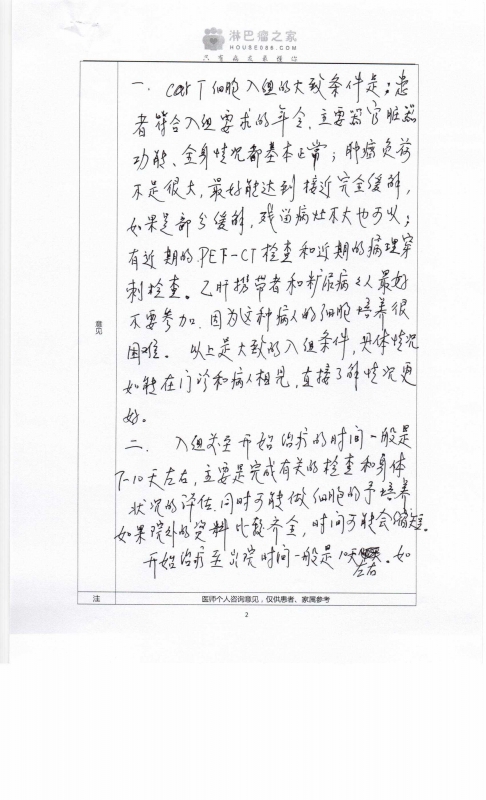 淋巴瘤之家
HOUSE086.COM
只有病友最懂你
一. car T 细胞入组的大致条件是:患
者符合入组要求的年令、主要器官脏器
功能、全身情况都基本正常;肿瘤负荷
不是很大,最好能达到接近完全缓解,
如果是部分缓解,残留病灶不大也可以;
有近期的PET-CT检查和近期的病理穿
刺检查。乙肝携带者和糖尿病人最好
不要参加,因为这种病人的细胞培养很
困难。 以上是大致的入组条件,具体情况
如能在门诊和病人相见,直接了解情况更
好。
二. 入组至开始治疗的时间一般是
7-10天左右,主要是完成有关的检查和身体
状况的评估,同时可能做细胞的予培养
如果院外的资料比较齐全,时间可能会缩短。
开始治疗至出院时间一般是10天左右。如
意见
注
医师个人咨询意见,仅供患者、家属参考
2